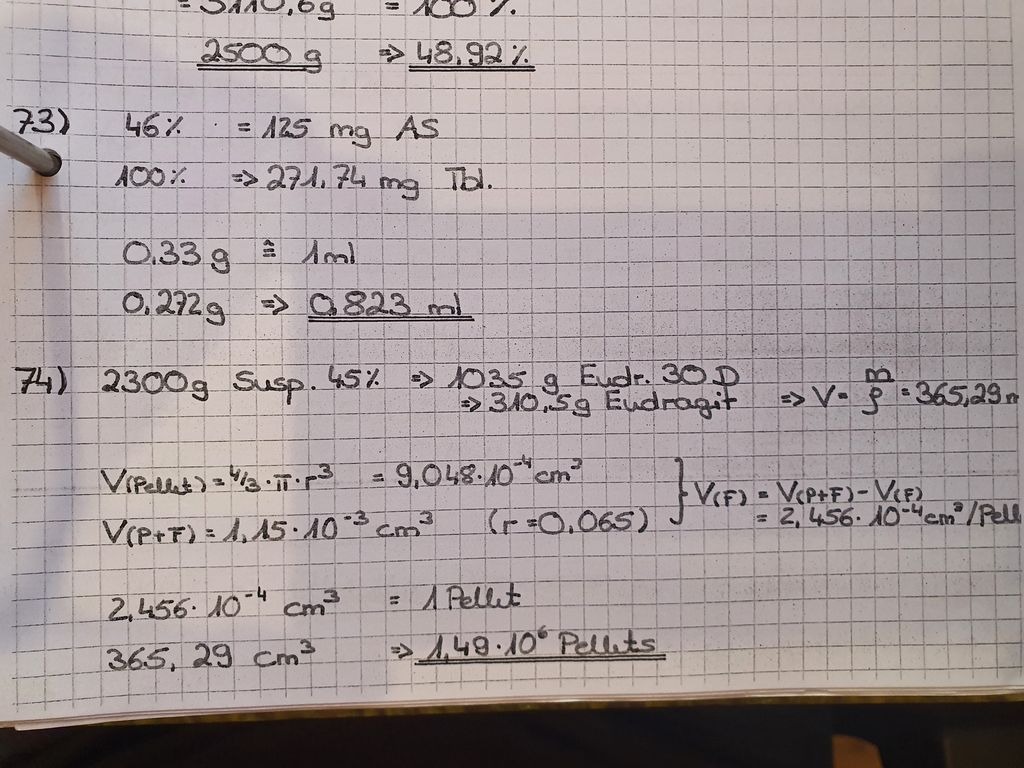 = 5110,6g = 100 %.
2500 g => 48,92 %
73) 46% = 125 mg AS
100% => 271,74 mg Tbl.
0,33 g ≙ 1ml
0,272g => 0,823 ml
74) 2300g Susp. 45% => 1035 g Eudr. 30 D
=> 310,5g Eudragit => V = m/ρ = 365,29
V(Pellet) = 4/3 · π · r³ = 9,048·10⁻⁴ cm³
V(P+F) = 1,15·10⁻³ cm³ (r = 0,065) } V(F) = V(P+F) - V(F)
= 2,456·10⁻⁴ cm³/Pell
2,456·10⁻⁴ cm³ = 1 Pellet
365,29 cm³ => 1,49·10⁶ Pellets